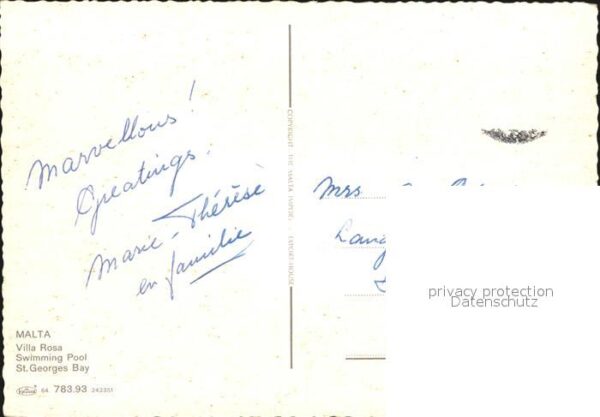 Marvellous!
Greatings.
Marie-Thérèse
en famille
MALTA
Villa Rosa
Swimming Pool
St. Georges Bay
64 783.93 242351
COPYRIGHT THE MALTA IMPORT EXPORT HOUSE
Mrs
privacy protection
Datenschutz